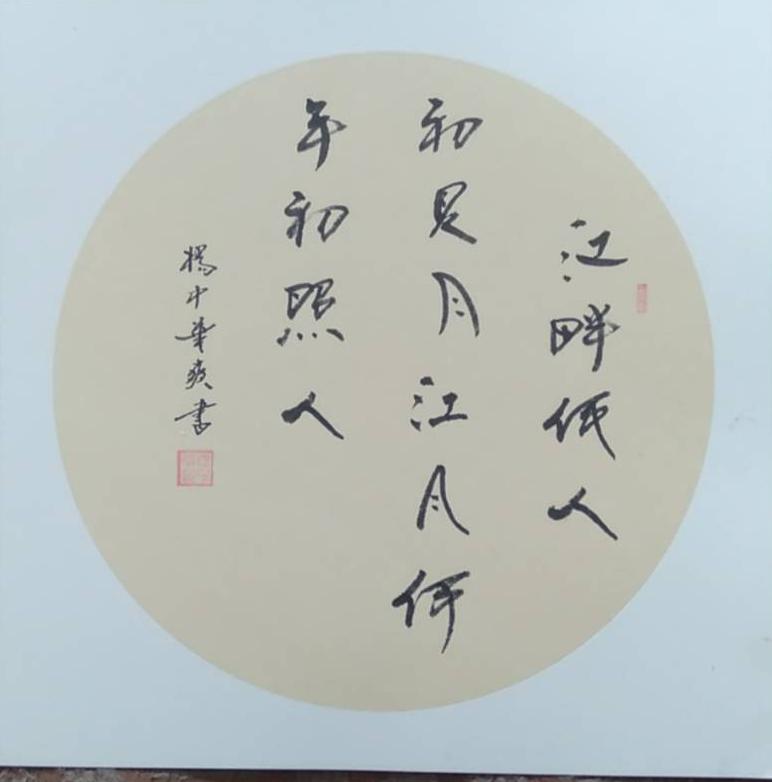 江畔何人
初見月江月何
年初照人
楊中華爽書